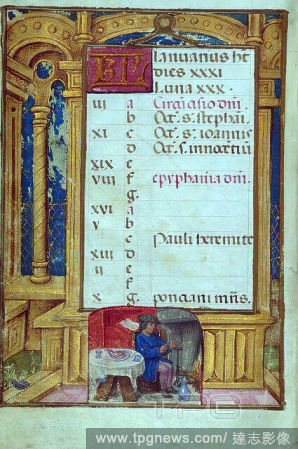 KL Ianuarius ht
dies xxxi
Luna xxx.
iii a Circūcisio dni.
b Oct. s. stephāi.
xi c Oct. s. ioannis
d Oct. s. innocētiū
xix e
viii f epyphania dni.
g.
xvi a
v b
c Pauli heremite
xiii d
ii e
f
x g. ponciani mris.
TPG
www.tpgnews.com/ 達志影像